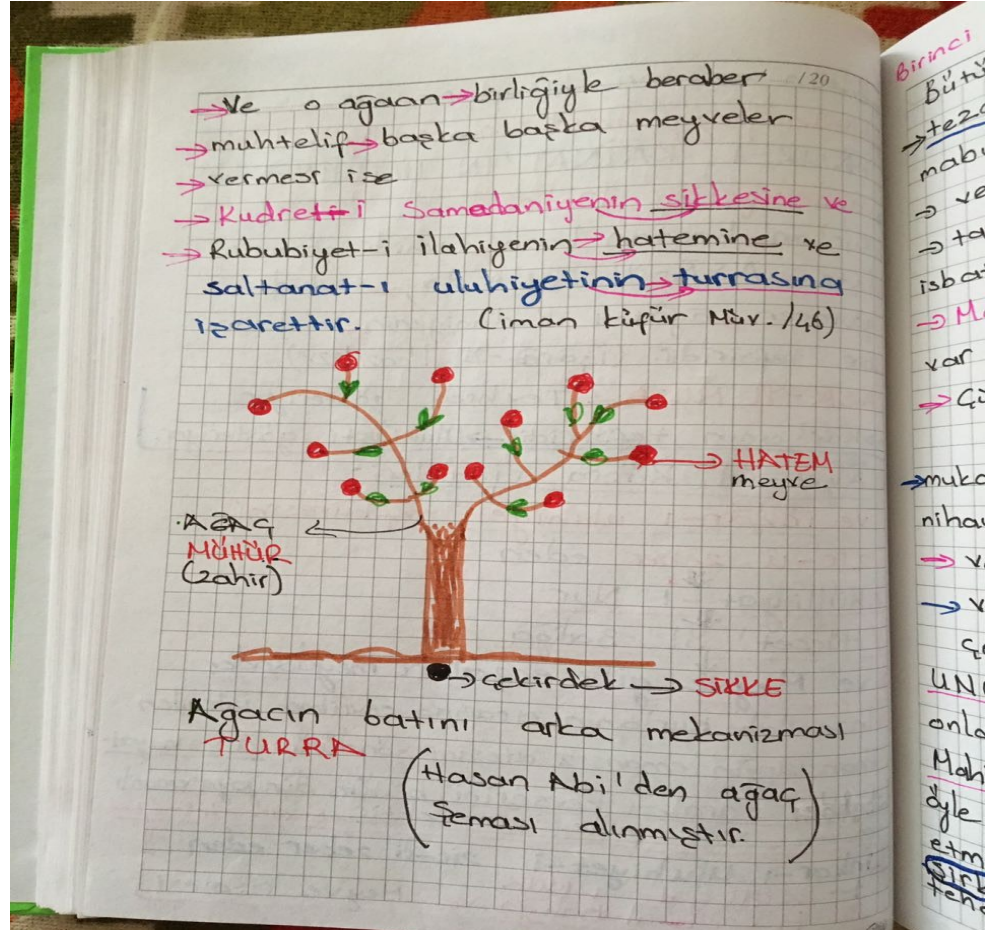 /20
→ Ve o ağacın → birliğiyle beraber
→ muhtelif → başka başka meyveler
→ vermesi ise
→ Kudret-i Samedaniyenin sikkesine ve
→ Rububiyet-i ilahiyenin → hatemine ve
saltanat-ı uluhiyetinin → turrasına
işarettir. (iman küfür Müv. /46)
→ HATEM
meyve
AĞAÇ
MÜHÜR
(zahir)
→ çekirdek → SİKKE
Ağacın batını arka mekanizması
TURRA
(Hasan Abi'den ağaç
şeması alınmıştır.)
Birinci
Bütü
→ teza
mabu
→ ve
→ ta
isba
→ M
var
→ Çü
→ muka
niha
→ v
→ v
UN
onla
Mah
öyle
etm
şirk